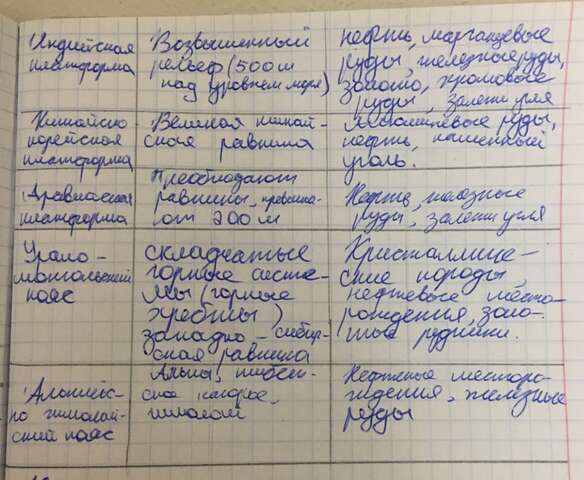 Индийская
платформа
Возвышенный
рельеф (500м
над уровнем моря)
нефть, марганцевые
руды, железные руды,
золото, хромовые
руды, залежи угля
Китайско
корейская
платформа
Великая китай-
ская равнина
руды,
нефть, каменный
уголь.
Аравийская
платформа
Преобладают
равнины, превыша-
ют 200м
Нефть, железные
руды, залежи угля
Урало-
монгольский
пояс
складчатые
горные систе-
мы (горные
хребты)
западно-сибир-
ская равнина
Кристалличе-
ские породы,
нефтевые место-
рождения, золо-
тые рудники.
Альпийск-
но гималай-
ский пояс
Альпы, тибет-
ское нагорье,
гималаи
Нефтяные месторо-
ждения, железные
руды